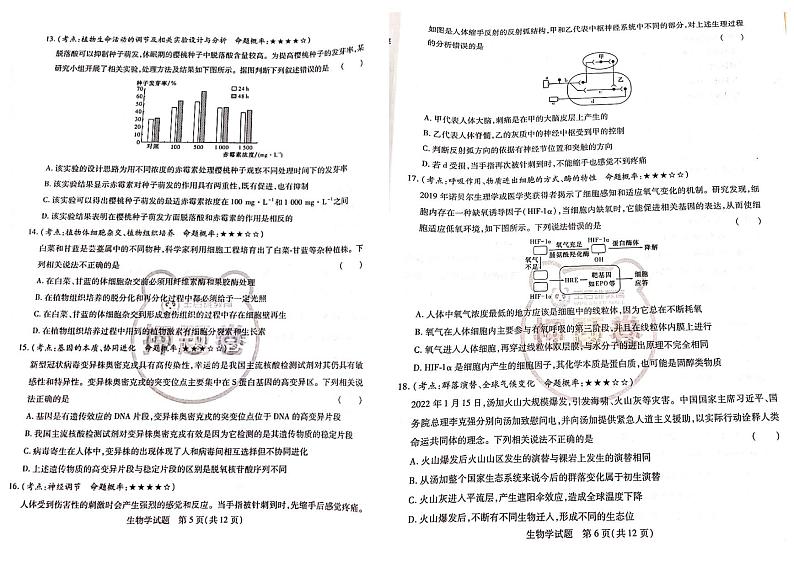 13.(考点:植物生命活动的调节及相关实验设计与分析 命题概率:★★★★☆)
脱落酸可以抑制种子萌发,休眠期的樱桃种子中脱落酸含量较高。为提高樱桃种子的发芽率,某
研究小组开展了相关实验,处理方法及结果如下图所示。据图判断下列叙述错误的是 ( )
种子发芽率/%
70
60
50
40
30
20
10
0
24 h
48 h
对照 100 500 1 000 1 500
赤霉素浓度/(mg·L⁻¹)
A. 该实验的设计思路为用不同浓度的赤霉素处理樱桃种子观察不同处理时间下的发芽率
B. 该实验结果显示赤霉素对种子萌发的作用具有两重性,既有促进,也有抑制
C. 该实验可以得出樱桃种子萌发的最适赤霉素浓度在100 mg·L⁻¹和1 000 mg·L⁻¹之间
D. 该实验结果表明在樱桃种子萌发方面脱落酸和赤霉素的作用是相反的
14.(考点:植物体细胞杂交、植物组织培养 命题概率:★★★★☆)
白菜和甘蓝是芸薹属中的不同物种,科学家利用细胞工程培育出了白菜-甘蓝等杂种植株。下
列相关说法不正确的是 ( )
A. 在白菜、甘蓝的体细胞杂交前必须用纤维素酶和果胶酶处理
B. 在植物组织培养的脱分化和再分化过程中都必须给予一定光照
C. 在白菜、甘蓝的体细胞杂交到形成愈伤组织的过程中存在细胞壁再生
D. 在植物组织培养过程中用到的植物激素有细胞分裂素和生长素
15.(考点:基因的本质、协同进化 命题概率:★★★★☆)
新型冠状病毒变异株奥密克戎具有高传染性,幸运的是我国主流核酸检测试剂对其仍具有敏
感性和特异性。变异株奥密克戎的突变位点主要集中在S蛋白基因的高变异区。下列相关说
法正确的是 ( )
A. 基因是有遗传效应的DNA片段,变异株奥密克戎的突变位点位于DNA的高变异片段
B. 我国主流核酸检测试剂对变异株奥密克戎有效是因为它检测的是其遗传物质的稳定片段
C. 病毒寄生在人体中,变异株的出现体现了人和病毒间相互选择但不协同进化
D. 上述遗传物质的高变异片段与稳定片段的区别是脱氧核苷酸序列不同
16.(考点:神经调节 命题概率:★★★★☆)
人体受到伤害性的刺激时会产生强烈的感觉和反应。当手指被针刺到时,先缩手后感觉疼痛。
生物学试题 第5页(共12页)
如图是人体缩手反射的反射弧结构,甲和乙代表中枢神经系统中不同的部分,对上述生理过程
的分析错误的是 ( )
甲
乙
a
c
d
A. 甲代表人体大脑,刺痛是在甲的大脑皮层上产生的
B. 乙代表人体脊髓,乙的灰质中的神经中枢受到甲的控制
C. 判断反射弧方向的依据有神经节位置和突触的方向
D. 若d受损,当手指再次被针刺到时,不能缩手也感觉不到疼痛
17.(考点:呼吸作用、物质进出细胞的方式、酶的特性 命题概率:★★★☆☆)
2019年诺贝尔生理学或医学奖获得者揭示了细胞感知和适应氧气变化的机制。研究发现,细
胞内存在一种缺氧诱导因子(HIF-1α),当细胞内缺氧时,它能促进相关基因的表达,从而使细
胞适应低氧环境,如下图所示。下列说法错误的是 ( )
HIF-1α
氧气充足
脯氨酰羟化酶
HIF-1α
蛋白酶体
降解
氧气
不足
HRE
靶基因
如EPO等
细胞
应答
HIF-1α
A. 人体中氧气浓度最低的地方应该是细胞中的线粒体,因为它总在不断耗氧
B. 氧气在人体细胞内主要参与有氧呼吸的第三阶段,并且在线粒体内膜上进行
C. 氧气进入人体细胞,再穿过线粒体双层膜,与水分子的进出原理不完全相同
D. HIF-1α是细胞内产生的细胞因子,其化学本质是蛋白质,也可能是固醇类物质
18.(考点:群落演替、全球气候变化 命题概率:★★★☆☆)
2022年1月15日,汤加火山大规模爆发,引发海啸、火山灰等灾害。中国国家主席习近平、国
务院总理李克强分别向汤加致慰问电,并向汤加提供紧急人道主义援助,以实际行动诠释人类
命运共同体的理念。下列相关说法不正确的是 ( )
A. 火山爆发后火山山区发生的演替与裸岩上发生的演替相同
B. 从汤加整个国家生态系统来说今后的群落变化属于初生演替
C. 火山灰进入平流层,产生遮阳伞效应,造成全球温度下降
D. 火山爆发后,不断有不同生物迁入,形成不同的生态位
生物学试题 第6页(共12页)